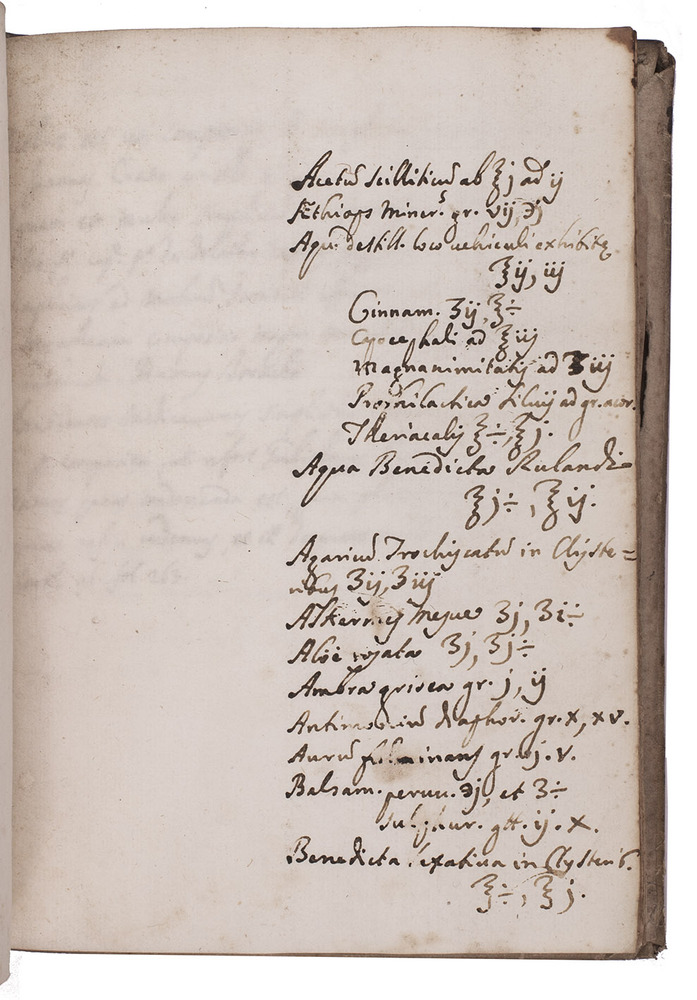 Acetū scilliticū ab ℥j ad ij
Æthiops Miner. gr. vij, ℈j
Aqu. destill. loco vehiculi exhibitę
℥ij, iij
Cinnam. ʒij, ℥÷
ad ℥iij
Magnanimitatis ad ʒiij
Prophilactica Silvij ad gr.
Theriacalis ℥÷, ℥j.
Aqua Benedicta Rulandi
℥j÷, ℥ij.
Agaricū Trochiscatū in Clyste=
ribus ʒij, ʒiij
Alkermes Mesue ʒj, ʒi÷
Aloë rosata ʒj, ʒj÷
Ambra grisea gr. j, ij
Antimoniū diaphor. gr. x, xv.
Aurū fulminans gr. ij. v.
Balsam. peruv. ℈j, et ʒ÷
sulphur. gtt. ij. x.
Benedicta lexativa in Clysterib.
℥÷, ℥j.